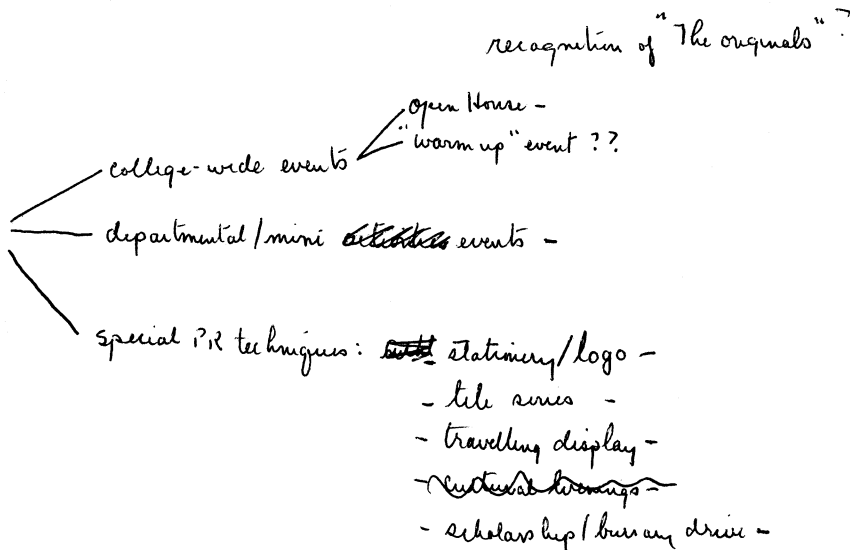 recognition of "The originals"?
open House -
college-wide events
"warm up" event ??
departmental/mini events -
special PR techniques: stationery/logo -
- tele series -
- travelling display -
- cultural evenings -
- scholarship/bursary drive -